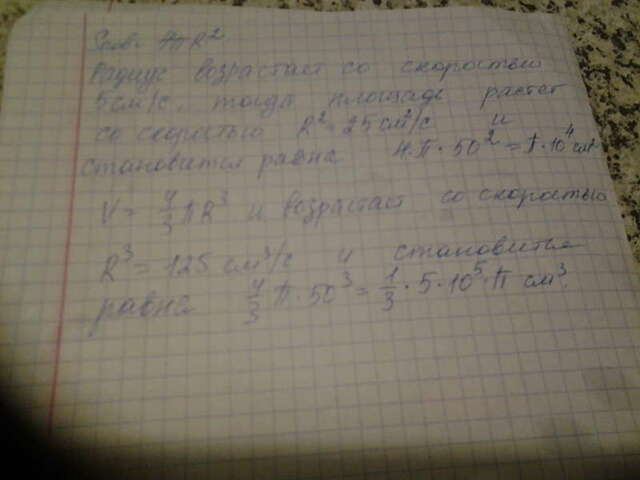 Sпов = 4πR²
Радиус возрастает со скоростью
5 см/с, тогда площадь растет
со скоростью R² = 25 см²/с и
становится равна 4·π·50² = π·10⁴ см²
V = 4/3 πR³ и возрастает со скоростью
R³ = 125 см³/с и становится
равна 4/3 π·50³ = 1/3·5·10⁵·π см³.